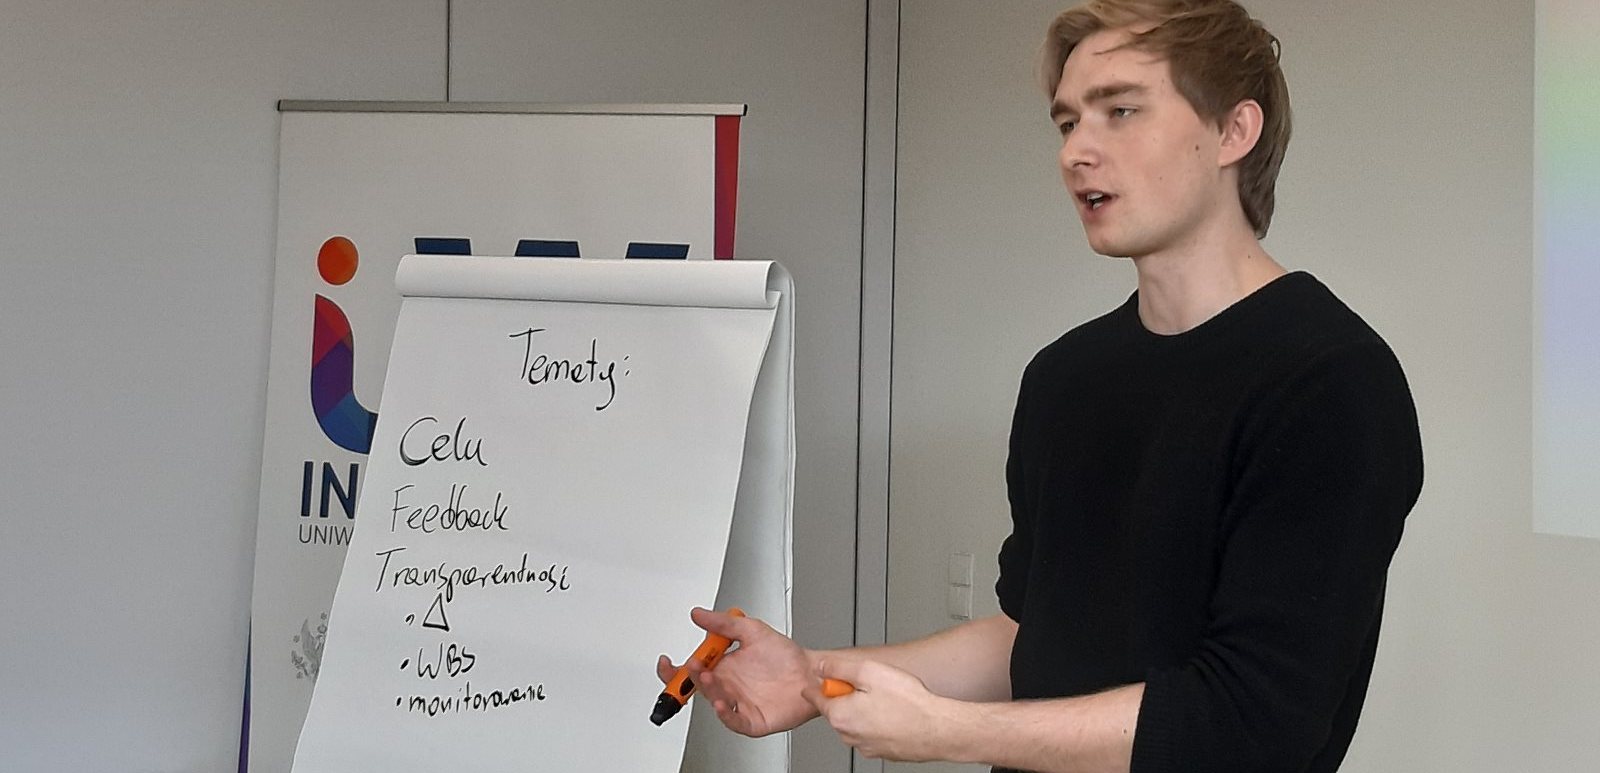 IN
UNIW
Tematy:
Celu
Feedback
Transparentność
• Δ
• WBS
• monitorowanie